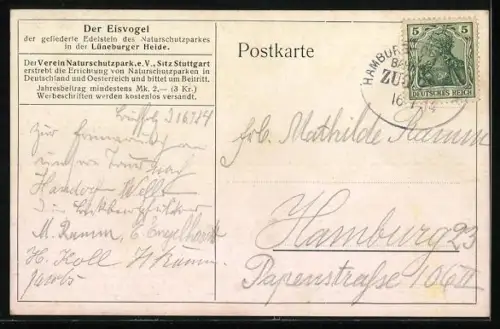 Der Eisvogel
der gefiederte Edelstein des Naturschutzparkes
in der Lüneburger Heide.
Der Verein Naturschutzpark, e. V., Sitz Stuttgart
erstrebt die Errichtung von Naturschutzparken in
Deutschland und Oesterreich und bittet um Beitritt.
Jahresbeitrag mindestens Mk. 2,— (3 Kr.)
Werbeschriften werden kostenlos versandt.
Postkarte
5 5
DEUTSCHES REICH
HAMBURG
ZUG
16 7 14
16 7 14
Zur Erinnerung an
unsere Tour nach
M. Ramm, E. Engelhardt
H. Koll H Ramm
Jacobs
Frl. Mathilde Ramm
Hamburg 23
Papenstraße 106 II